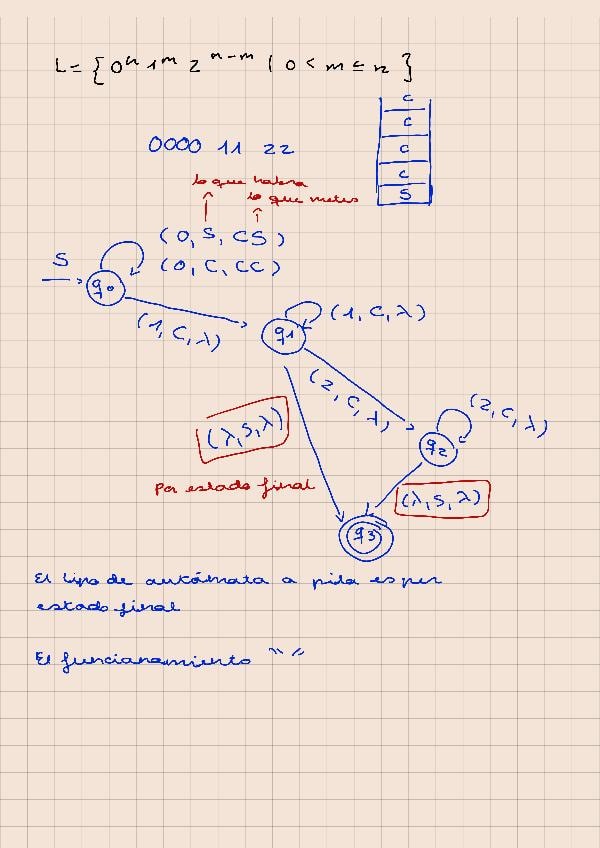 L = { 0ⁿ 1ᵐ 2ⁿ⁻ᵐ | 0 < m ≤ n }
C
C
C
C
S
0000 11 22
lo que habría
lo que metes
(0, S, CS)
(0, C, CC)
S
q0
(1, C, λ)
q1
(1, C, λ)
(2, C, λ)
(2, C, λ)
q2
(λ, S, λ)
(λ, S, λ)
Por estado final
q3
El tipo de autómata a pila es por
estado final
El funcionamiento " "